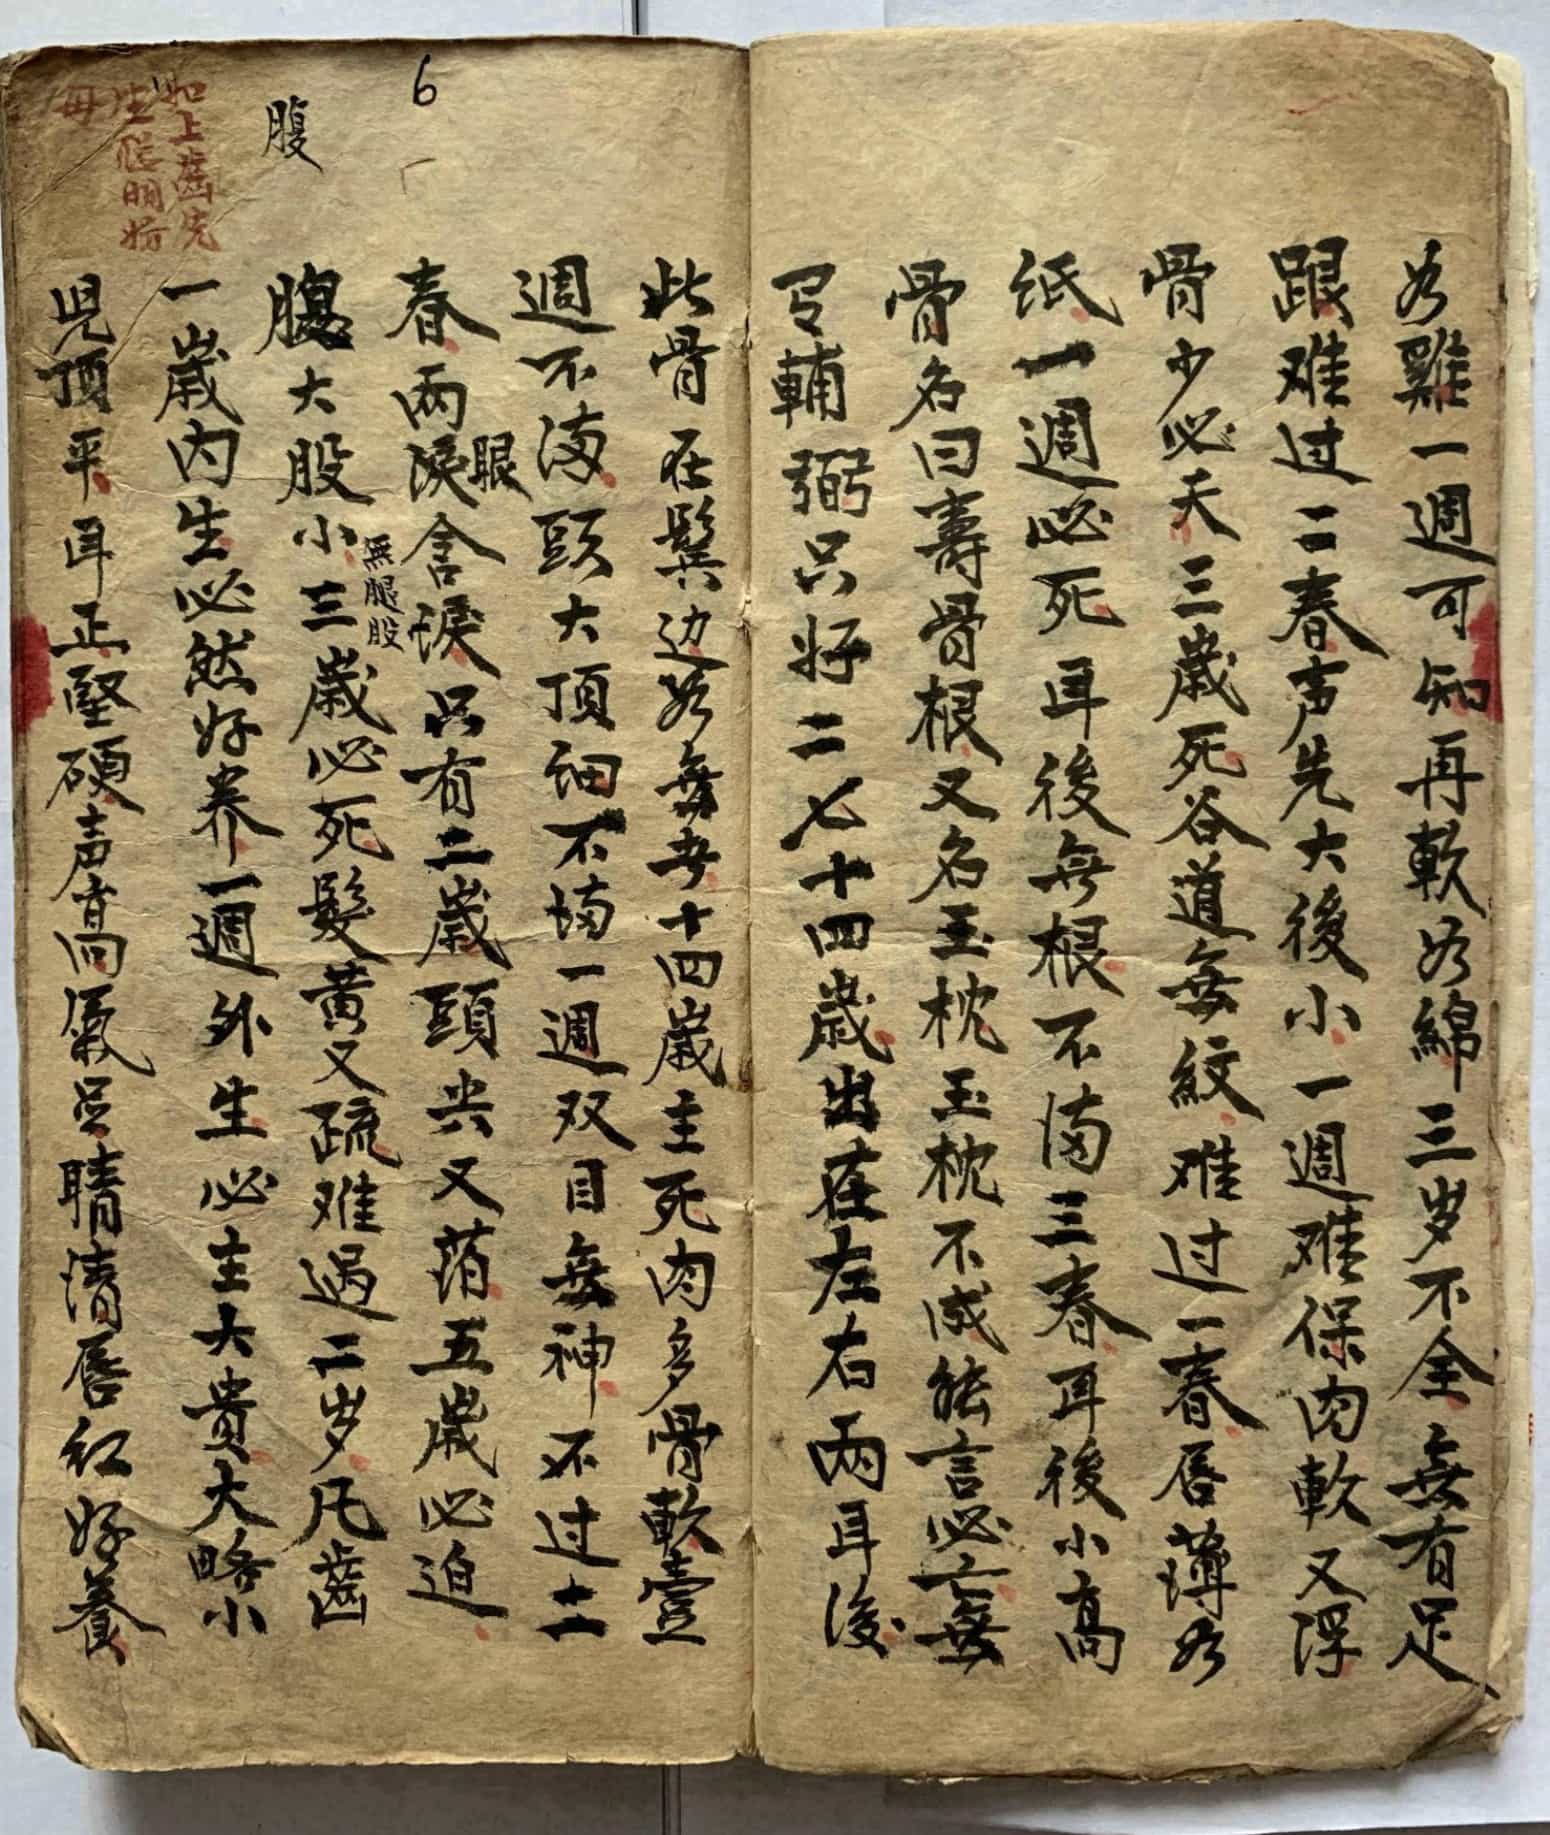 為雞一週可知再軟為綿三岁不全無有足
跟难过二春声先大後小一週难保肉軟又浮
骨少必夭三歲死谷道無紋难过一春唇薄為
纸一週必死耳後無根不满三春耳後小高
骨名曰壽骨骨根又名玉枕玉枕不成能言必亡無
輔弼只好二七十四歲出在左右兩耳後
此骨在鬓边為無 十四歲主死肉多骨軟壹
週不满頭大頂细不 一週双目無神不过二
春兩淚眼含淚只有二歲頭尖又落五歲必追
腹大股小無腿股三歲必死髮黄又疏难過二岁凡齒
一歲内生必然好养一週外生必主大贵大略小
児頂平耳正堅硬声高氣足睛清唇红好養
6
腹
如上齒先
生 明妨
母